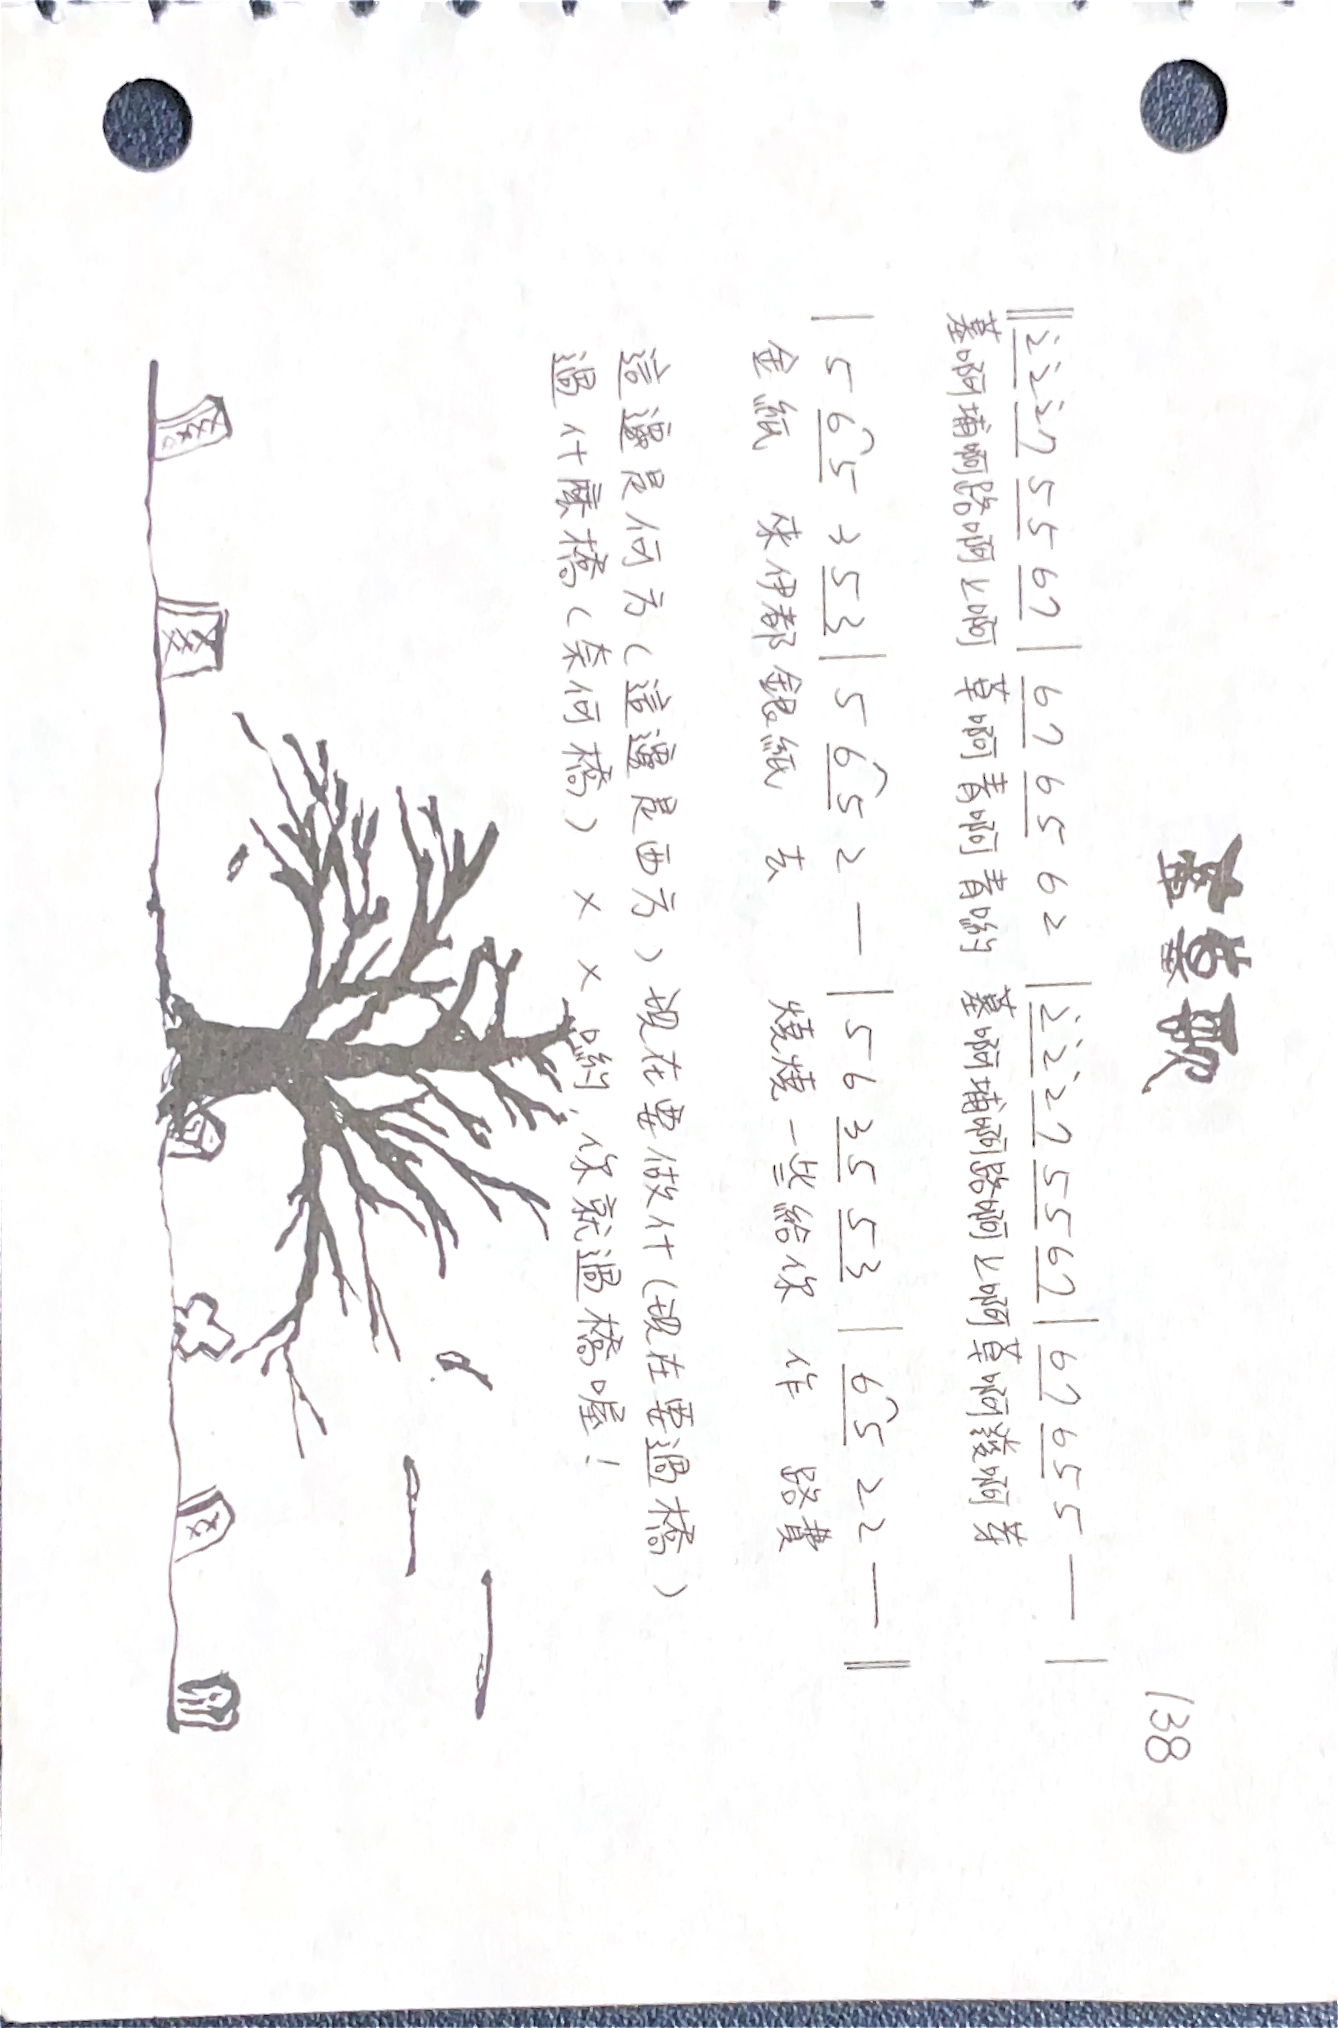 蓋墓歌
138
‖ 2̇ 2̇ 2̇ 7 5 5 6 7 | 6 7 6 5 6 2 | 2̇ 2̇ 2̇ 7 5 5 6 7 | 6 7 6 5 5 — |
墓啊埔啊路啊上啊 草啊青啊青喲 墓啊埔啊路啊上啊草啊發啊芽
| 5 6 5 3 5 3 | 5 6 5 2 — | 5 6 3 5 5 3 | 6 5 2 2 — ‖
金紙 來伊都銀紙 去 燒燒一些給你 作 路費
這邊是何方(這邊是西方)現在要做什(現在要過橋)
過什麼橋(奈何橋) × × 喲,你就過橋喔!